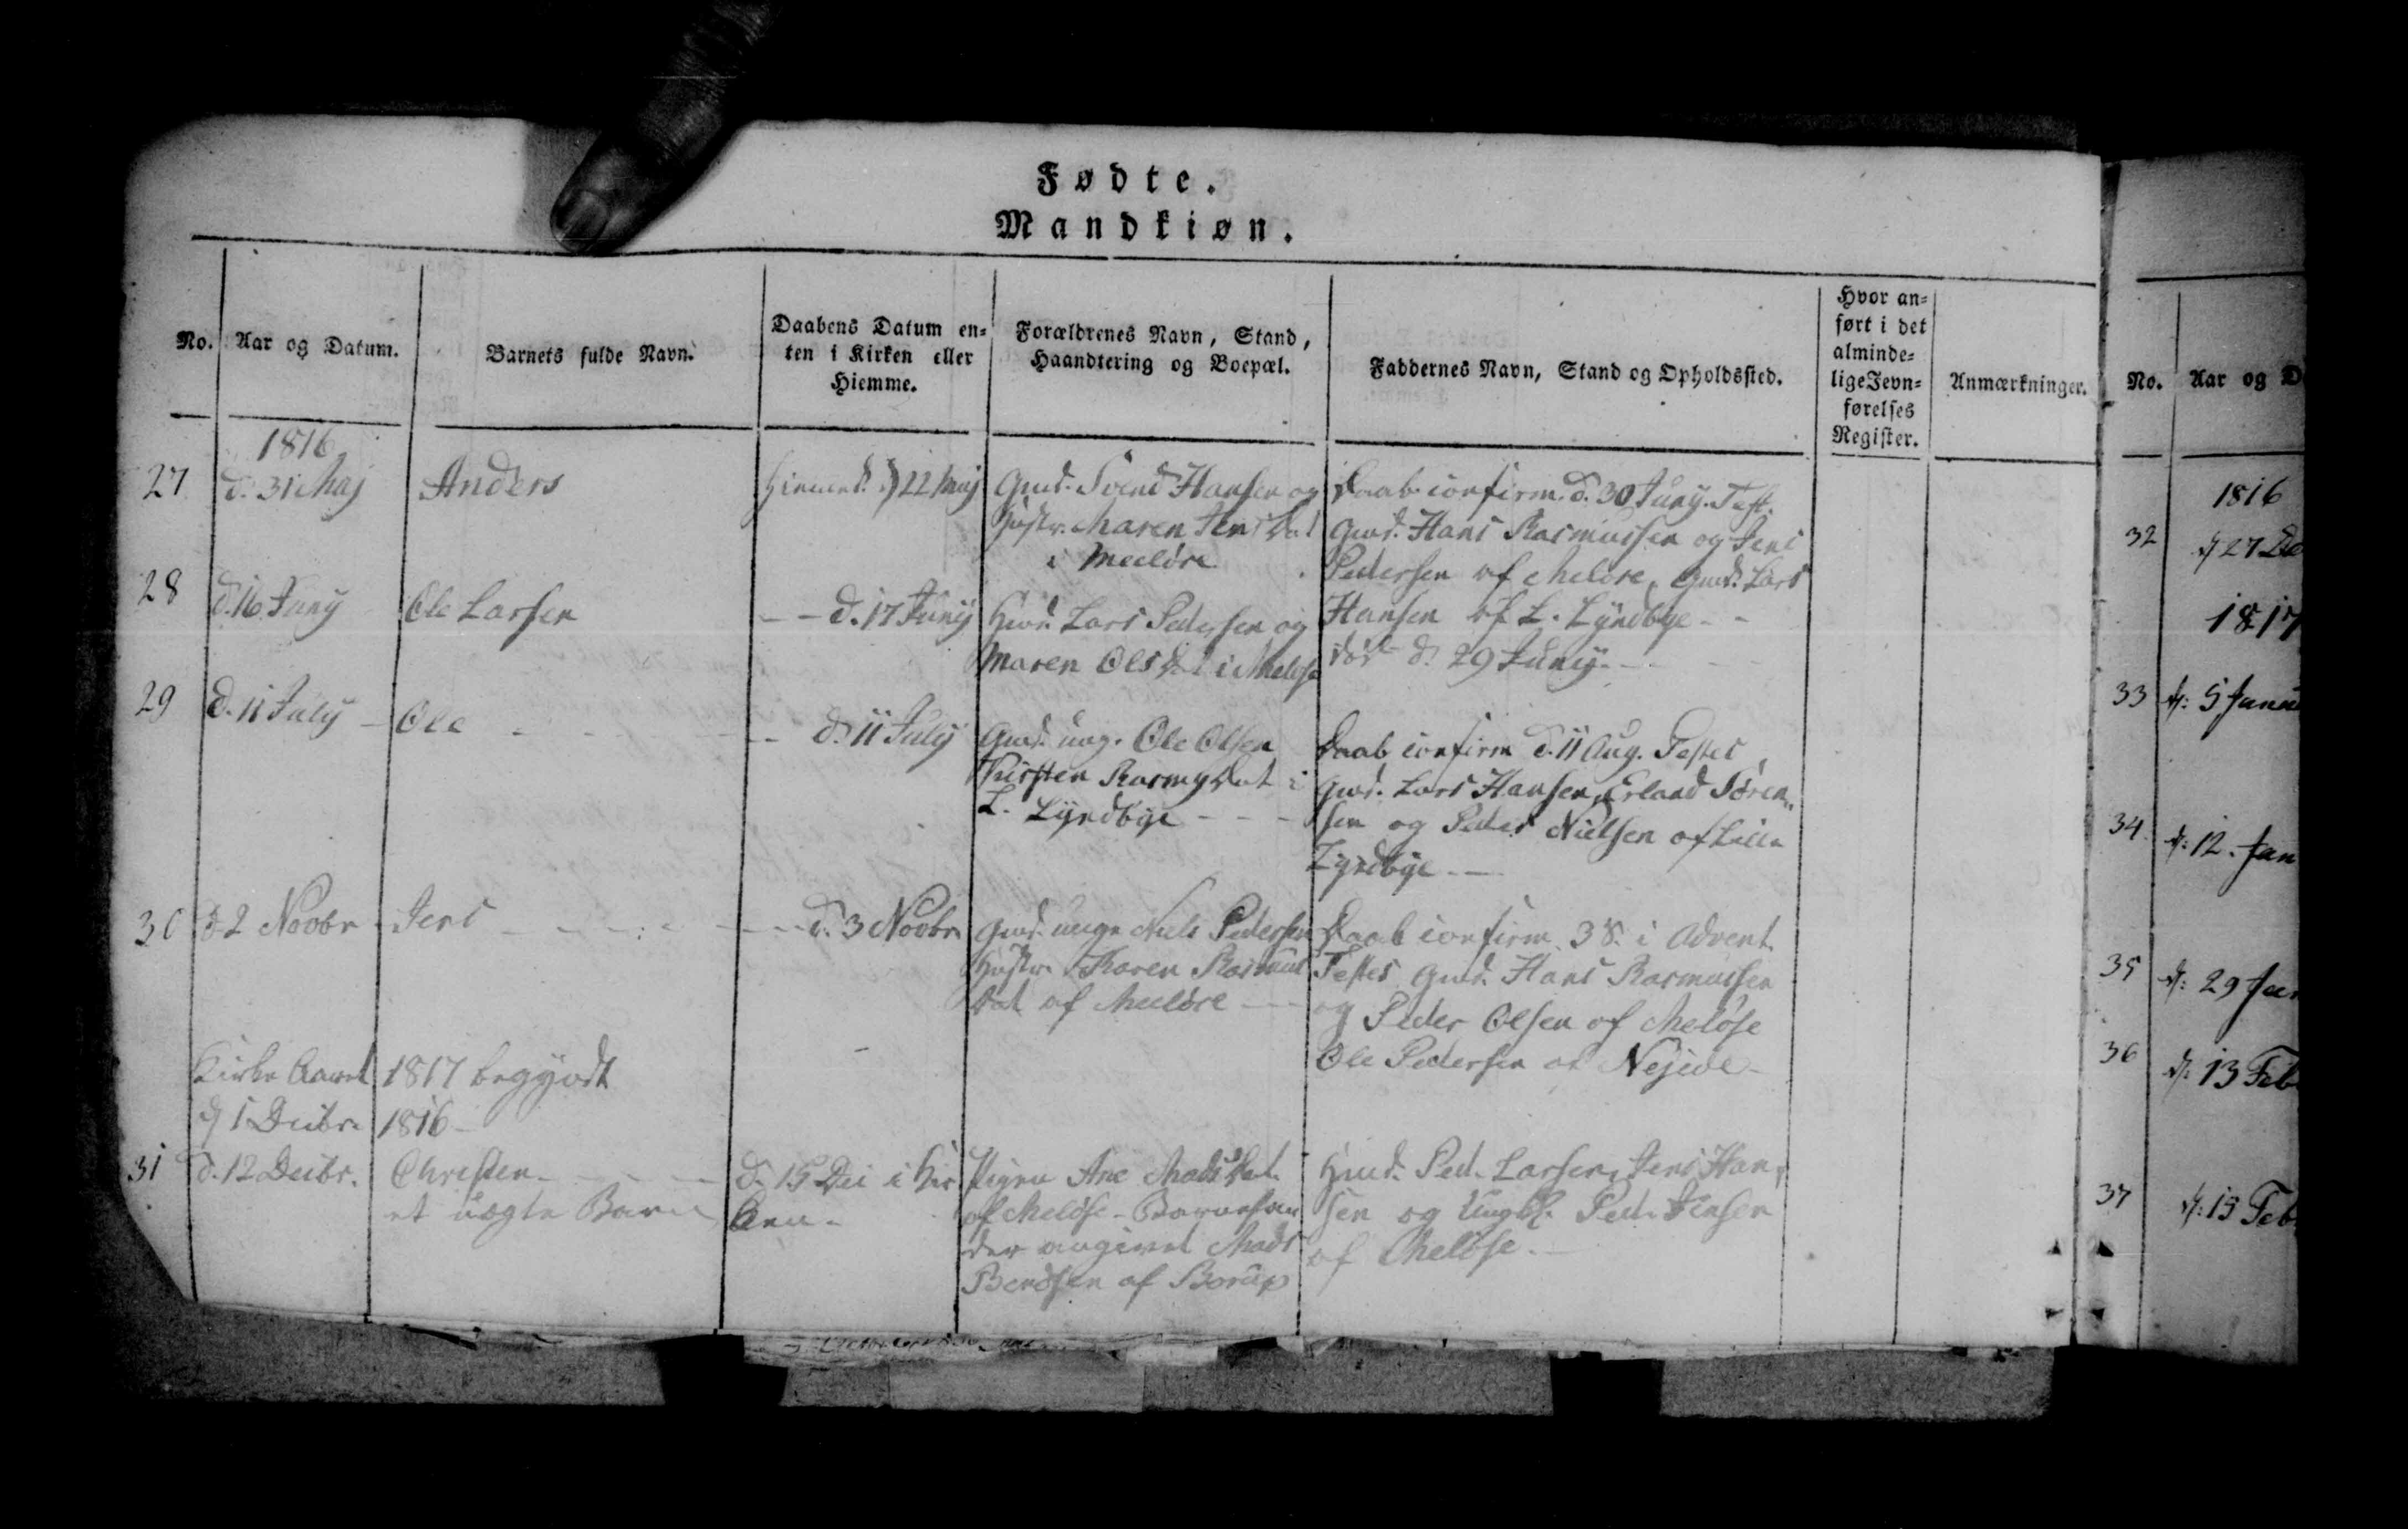 Fødte.
Mandkiøn.
No.
Aar og Datum.
Barnets fulde Navn.
Daabens Datum en=
ten i Kirken eller
Hiemme.
Forældrenes Navn, Stand,
Haandtering og Boepæl.
Faddernes Navn, Stand og Opholdssted.
Hvor an=
ført i det
alminde=
lige Jevn=
førelses
Register.
Anmærkninger.
1816
27
d. 31 Maj
Anders
Gmd. Svend Hansen og
Hustr. Maren Jens Dat
i Meeløse
Daab confirm. d. 30 Juny. Test.
Gmd. Hans Rasmussen og Jens
Pedersen af Meløse, Gmd. Lars
Hansen af L. Lyndbye - -
28
d. 16 Juny
Ole Larsen
- - d. 17 Juny
Hmd. Lars Pedersen og
Maren Ols Dat i Meløse
død d. 29 Juny. -
29
d. 11 July
Ole
d. 11 July
Gmd. ung. Ole Olsen
Kirsten Rasmus Dat i
L. Lyndbye - - -
Daab confirm d. 11 Aug. Testes
Gmd. Lars Hansen, Erland Sören„
sen og Peder Nielsen af Lille
Lyndbye - -
30
d 2 Novbr
Jens
d. 3 Novbr.
Gmd. unge Niels Pedersen
Hustr. Karen Rasmus
Dat af Meeløse -
Daab confirm. 3 S. i Advent
Testes Gmd. Hans Rasmussen
og Peder Olsen af Meløse
Ole Pedersen af Nejede -
Kirke Aaret 1817 begyndt
d 1 Decbr. 1816 -
31
d. 12 Decbr.
Christen
et uægte Barn
d. 15 Dec i Kir
ken -
Pigen Ane Mads Dat.
af Meløse - Barnefa
der angivet Mads
Bendsen af Borup
Hmd. Ped. Larsen, Jens Han„
sen og Ungk. Ped. Jensen
af Meløse. -
No.
Aar og D
1816
32
d 27 De
1817
33
d: 5 Janu
34
d: 12. Jan
35
d: 29 Jan
36
d: 13 Feb
37
d: 15 Feb